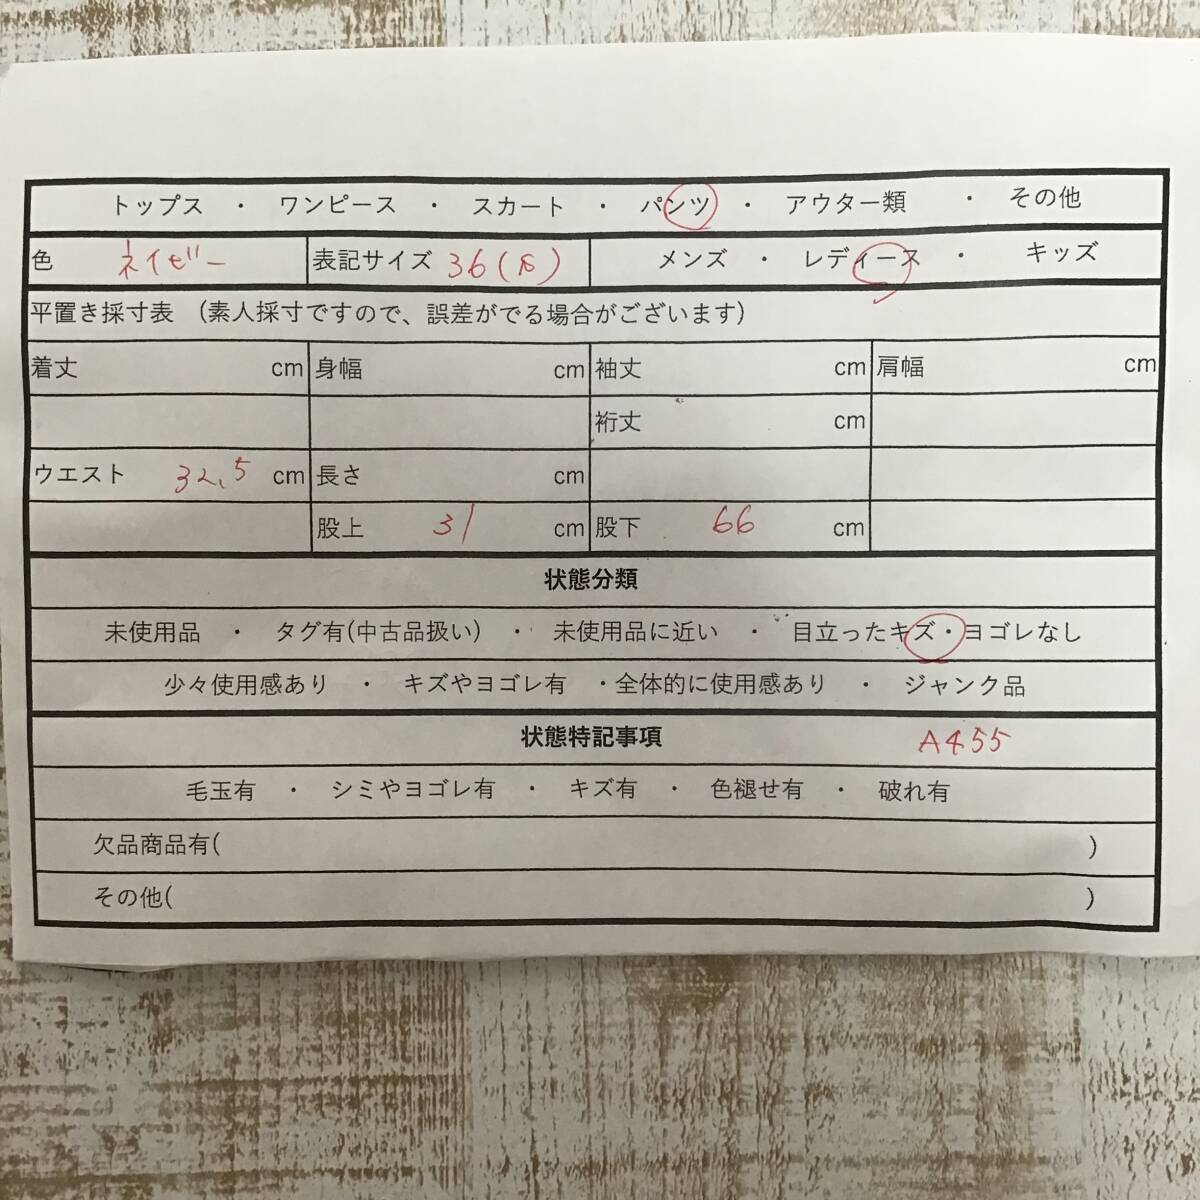 トップス ・ ワンピース ・ スカート ・ パンツ ・ アウター類 ・ その他
色 ネイビー 表記サイズ 36(S) メンズ ・ レディース ・ キッズ
平置き採寸表 (素人採寸ですので、誤差がでる場合がございます)
着丈 cm 身幅 cm 袖丈 cm 肩幅 cm
裄丈 cm
ウエスト 32.5 cm 長さ cm
股上 31 cm 股下 66 cm
状態分類
未使用品 ・ タグ有(中古品扱い) ・ 未使用品に近い ・ 目立ったキズ・ヨゴレなし
少々使用感あり ・ キズやヨゴレ有 ・全体的に使用感あり ・ ジャンク品
状態特記事項 A455
毛玉有 ・ シミやヨゴレ有 ・ キズ有 ・ 色褪せ有 ・ 破れ有
欠品商品有( )
その他( )